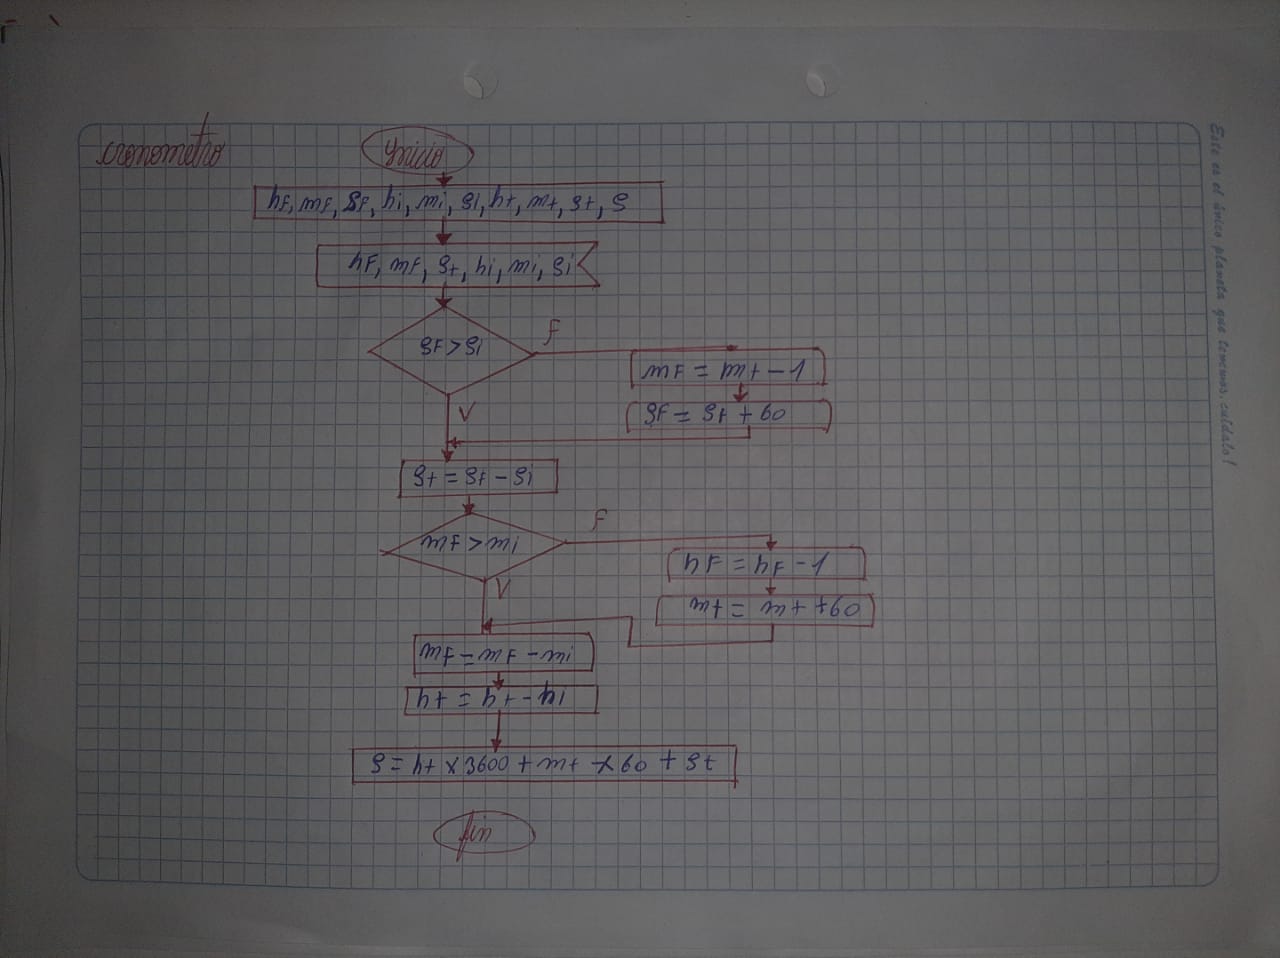 cronometro
Inicio
hf, mf, sf, hi, mi, si, ht, mt, st, s
hf, mf, st, hi, mi, si
sf > si
F
mf = mt - 1
sf = st + 60
V
st = sf - si
mf > mi
F
hf = hf - 1
mt = mt + 60
V
mf = mf - mi
ht = ht - hi
s = ht x 3600 + mt x 60 + st
fin
Este es el único planeta que tenemos, cuídalo!